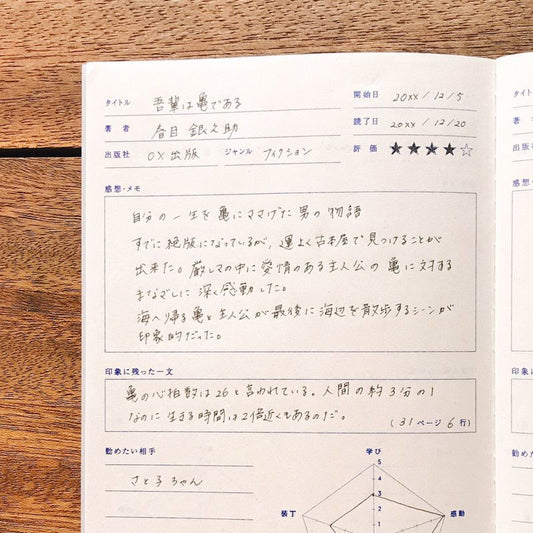 タイトル 吾輩は亀である
開始日 20xx / 12 / 5
著者 春目 銀之助
読了日 20xx / 12 / 20
出版社 OX出版 ジャンル フィクション
評価 ★★★★☆
感想・メモ
自分の一生を亀にささげた男の物語
すでに絶版になっているが、運よく古本屋で見つけることが
出来た。厳しさの中に愛情のある主人公の亀に対する
まなざしに深く感動した。
海へ帰る亀と主人公が最後に海辺を散歩するシーンが
印象的だった。
印象に残った一文
亀の心拍数は26と言われている。人間の約3分の1
なのに生きる時間は2倍近くもあるのだ。
(31ページ 6行)
勧めたい相手
さと子ちゃん
学び
5
4
3
2
1
装丁
感動
タイト
著者
出版社
感想・
印象に
勧めた